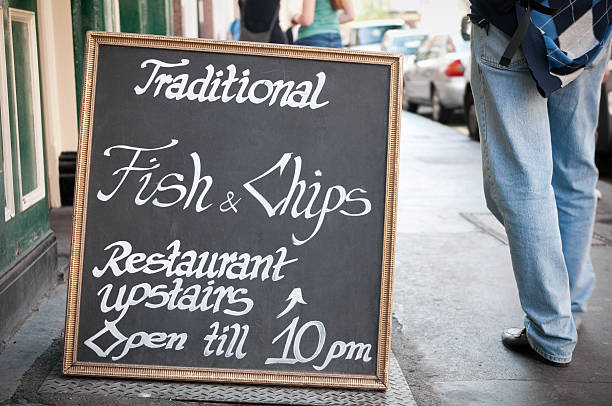 Traditional
Fish & Chips
Restaurant
upstairs
Open till 10 pm